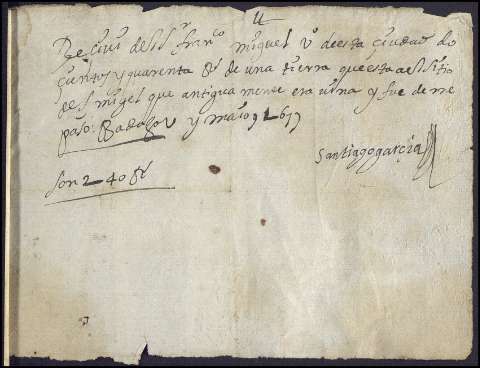 Reciui del sr franco miguel vo de esta çiudad do
çientos y quarenta Rs de una tierra que esta al sitio
de s. migel que antigua mente era viña y fue de
paso: y maio 9 1677
Santiago garçia
son 240 Rs